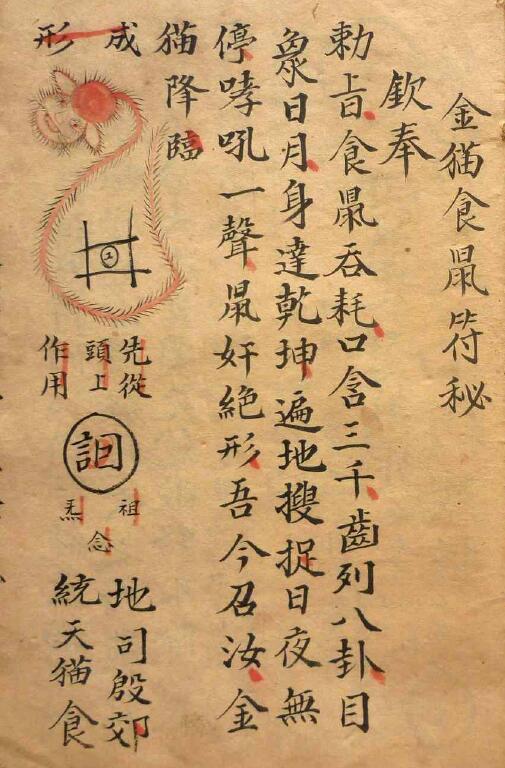 金猫食鼠符秘
欽奉
勅旨食鼠吞耗口含三千齒列八卦目
象日月身達乾坤遍地搜捉日夜無
停哮吼一聲鼠奸絕形吾今召汝金
猫降臨
成形
先從
頭上
作用
祖
念
炁
地司殷郊
統天猫食